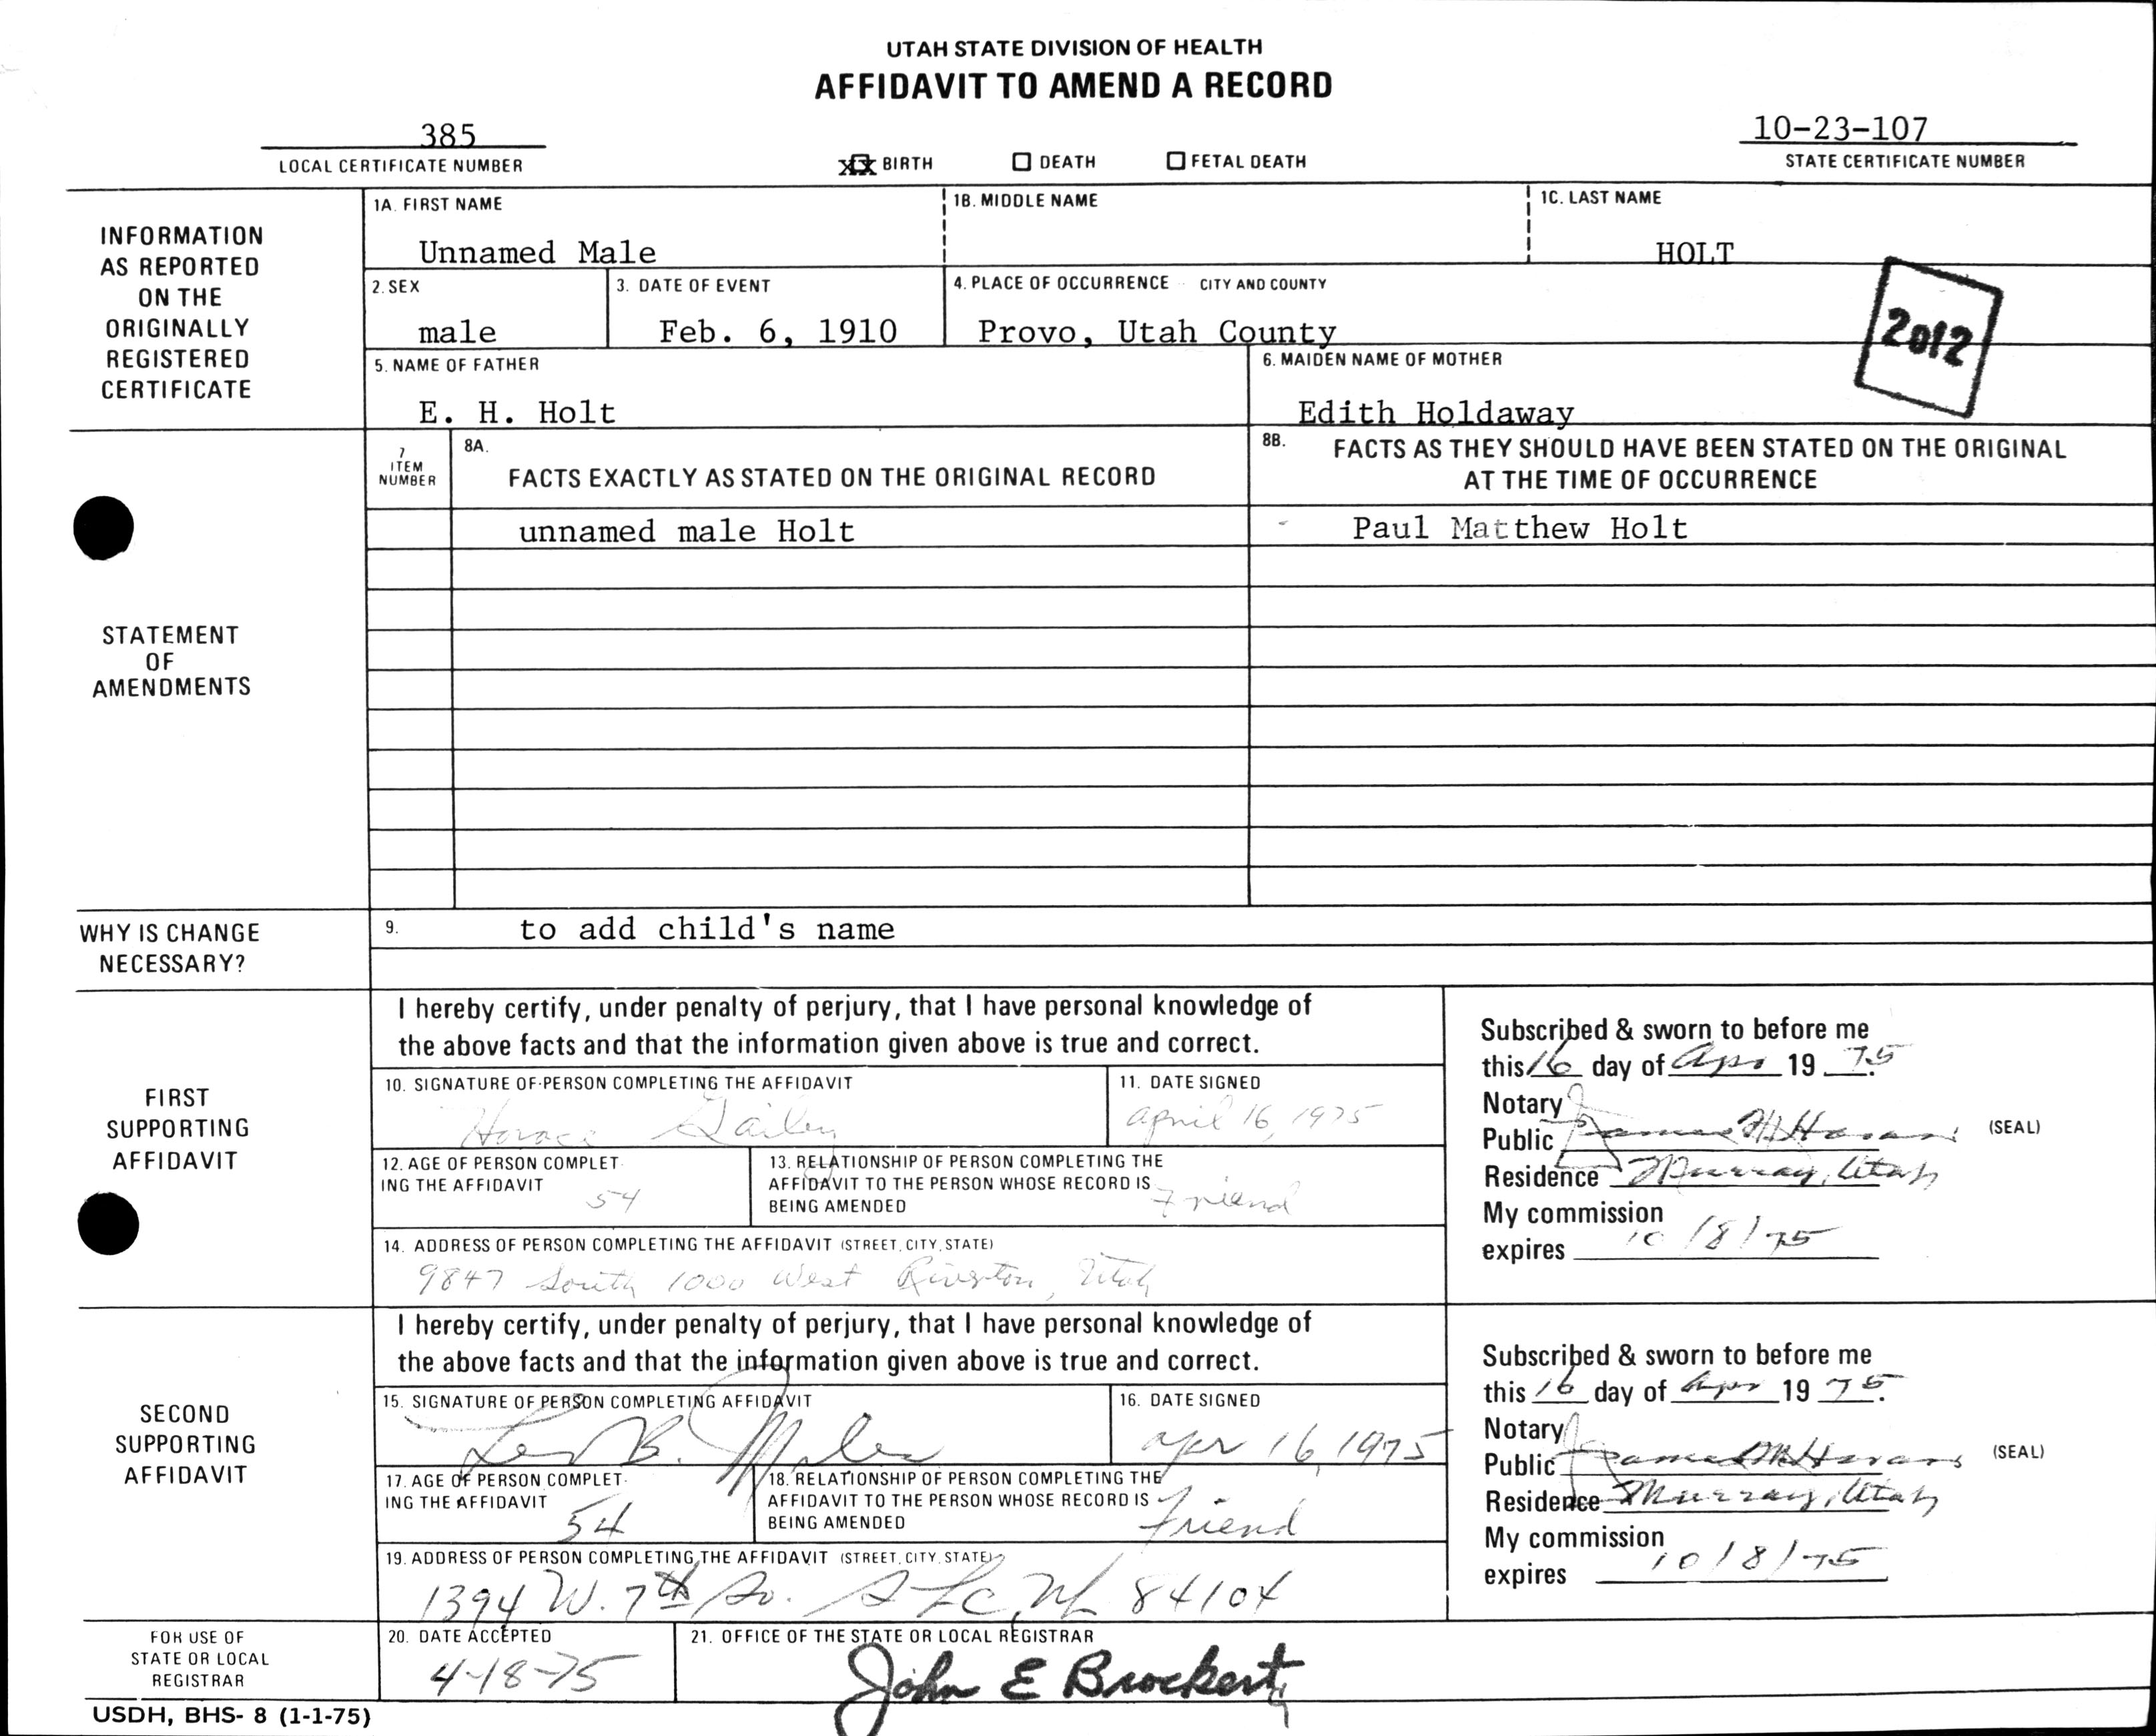 UTAH STATE DIVISION OF HEALTH
AFFIDAVIT TO AMEND A RECORD
385
LOCAL CERTIFICATE NUMBER
XX BIRTH
DEATH
FETAL DEATH
10-23-107
STATE CERTIFICATE NUMBER
INFORMATION
AS REPORTED
ON THE
ORIGINALLY
REGISTERED
CERTIFICATE
1A. FIRST NAME
Unnamed Male
1B. MIDDLE NAME
1C. LAST NAME
HOLT
2. SEX
male
3. DATE OF EVENT
Feb. 6, 1910
4. PLACE OF OCCURRENCE CITY AND COUNTY
Provo, Utah County
2012
5. NAME OF FATHER
E. H. Holt
6. MAIDEN NAME OF MOTHER
Edith Holdaway
STATEMENT
OF
AMENDMENTS
7
ITEM
NUMBER
8A.
FACTS EXACTLY AS STATED ON THE ORIGINAL RECORD
8B. FACTS AS THEY SHOULD HAVE BEEN STATED ON THE ORIGINAL
AT THE TIME OF OCCURRENCE
unnamed male Holt
Paul Matthew Holt
WHY IS CHANGE
NECESSARY?
9. to add child's name
FIRST
SUPPORTING
AFFIDAVIT
I hereby certify, under penalty of perjury, that I have personal knowledge of
the above facts and that the information given above is true and correct.
10. SIGNATURE OF PERSON COMPLETING THE AFFIDAVIT
Horace Gailey
11. DATE SIGNED
april 16, 1975
12. AGE OF PERSON COMPLET-
ING THE AFFIDAVIT
54
13. RELATIONSHIP OF PERSON COMPLETING THE
AFFIDAVIT TO THE PERSON WHOSE RECORD IS
BEING AMENDED
Friend
14. ADDRESS OF PERSON COMPLETING THE AFFIDAVIT (STREET, CITY, STATE)
9847 South 1000 West Riverton, Utah
Subscribed & sworn to before me
this 16 day of Apr 19 75
Notary
Public James (SEAL)
Residence Murray, Utah
My commission
expires 10/8/75
SECOND
SUPPORTING
AFFIDAVIT
I hereby certify, under penalty of perjury, that I have personal knowledge of
the above facts and that the information given above is true and correct.
15. SIGNATURE OF PERSON COMPLETING AFFIDAVIT
B.
16. DATE SIGNED
apr 16, 1975
17. AGE OF PERSON COMPLET-
ING THE AFFIDAVIT
54
18. RELATIONSHIP OF PERSON COMPLETING THE
AFFIDAVIT TO THE PERSON WHOSE RECORD IS
BEING AMENDED
friend
19. ADDRESS OF PERSON COMPLETING THE AFFIDAVIT (STREET, CITY, STATE)
1394 W. 7th So. SLC, Ut 84104
Subscribed & sworn to before me
this 16 day of Apr 19 75.
Notary
Public James (SEAL)
Residence Murray, Utah
My commission
expires 10/8/75
FOR USE OF
STATE OR LOCAL
REGISTRAR
20. DATE ACCEPTED
4-18-75
21. OFFICE OF THE STATE OR LOCAL REGISTRAR
John E Brockert
USDH, BHS- 8 (1-1-75)